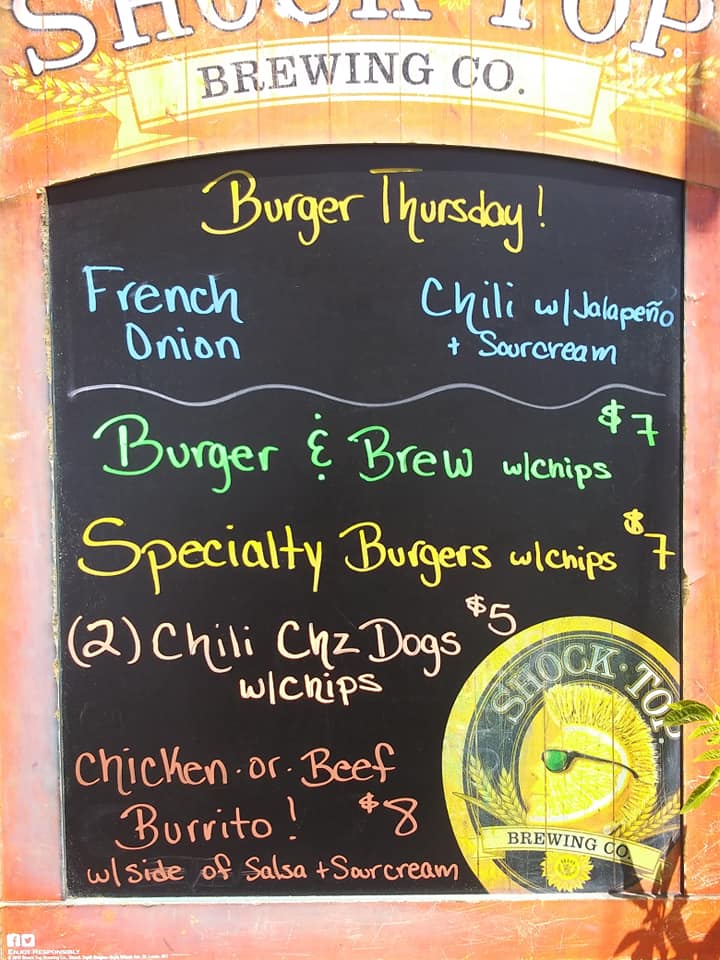 SHOCK TOP
BREWING CO.
Burger Thursday!
French
Onion
Chili w/Jalapeño
+ Sourcream
Burger & Brew w/chips $7
Specialty Burgers w/chips $7
(2) Chili Chz Dogs $5
w/chips
Chicken or Beef
Burrito! $8
w/ side of Salsa + Sourcream
SHOCK·TOP
BREWING CO.
ENJOY RESPONSIBLY